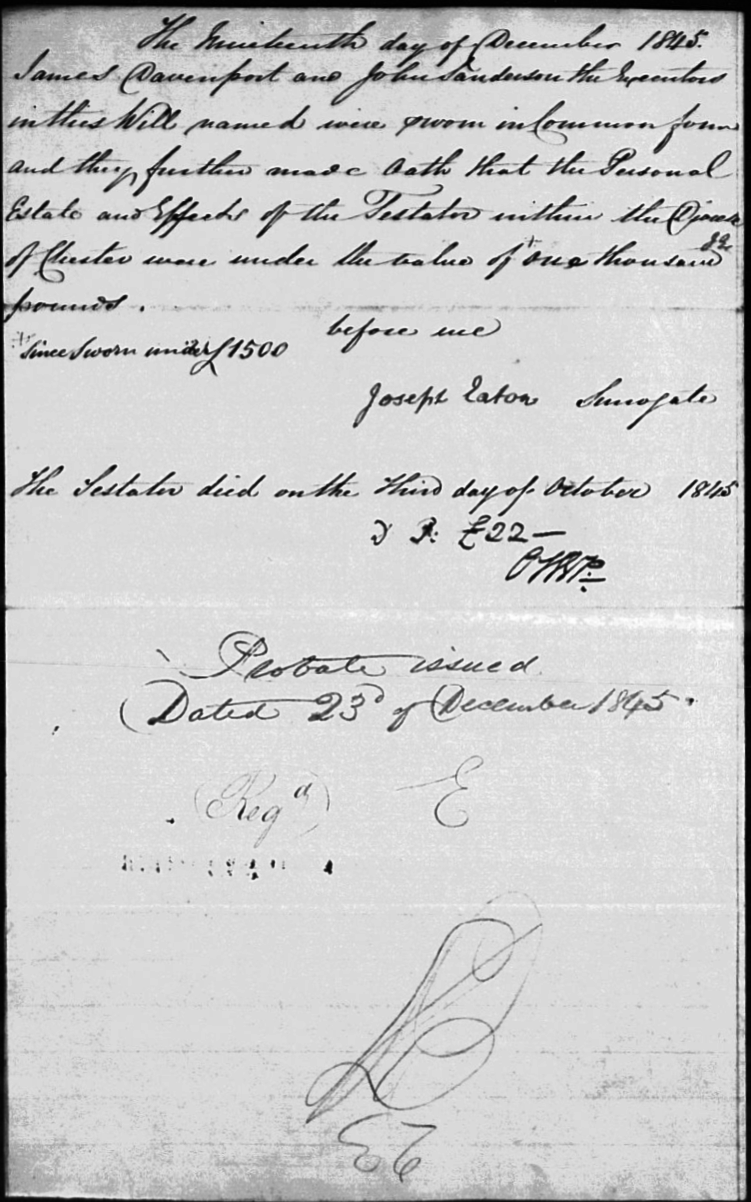 The Nineteenth day of December 1845.
James Davenport and John Sanderson the Executors
in this Will named were sworn in Common form
and they further made Oath that the Personal
Estate and Effects of the Testator within the Diocese
of Chester were under the value of + one thousand
pounds.
before me
+ Since Sworn under £1500
Joseph Eaton Surrogate
The Testator died on the third day of October 1845
£22—
Probate issued
Dated 23d of December 1845.
(Regd) E